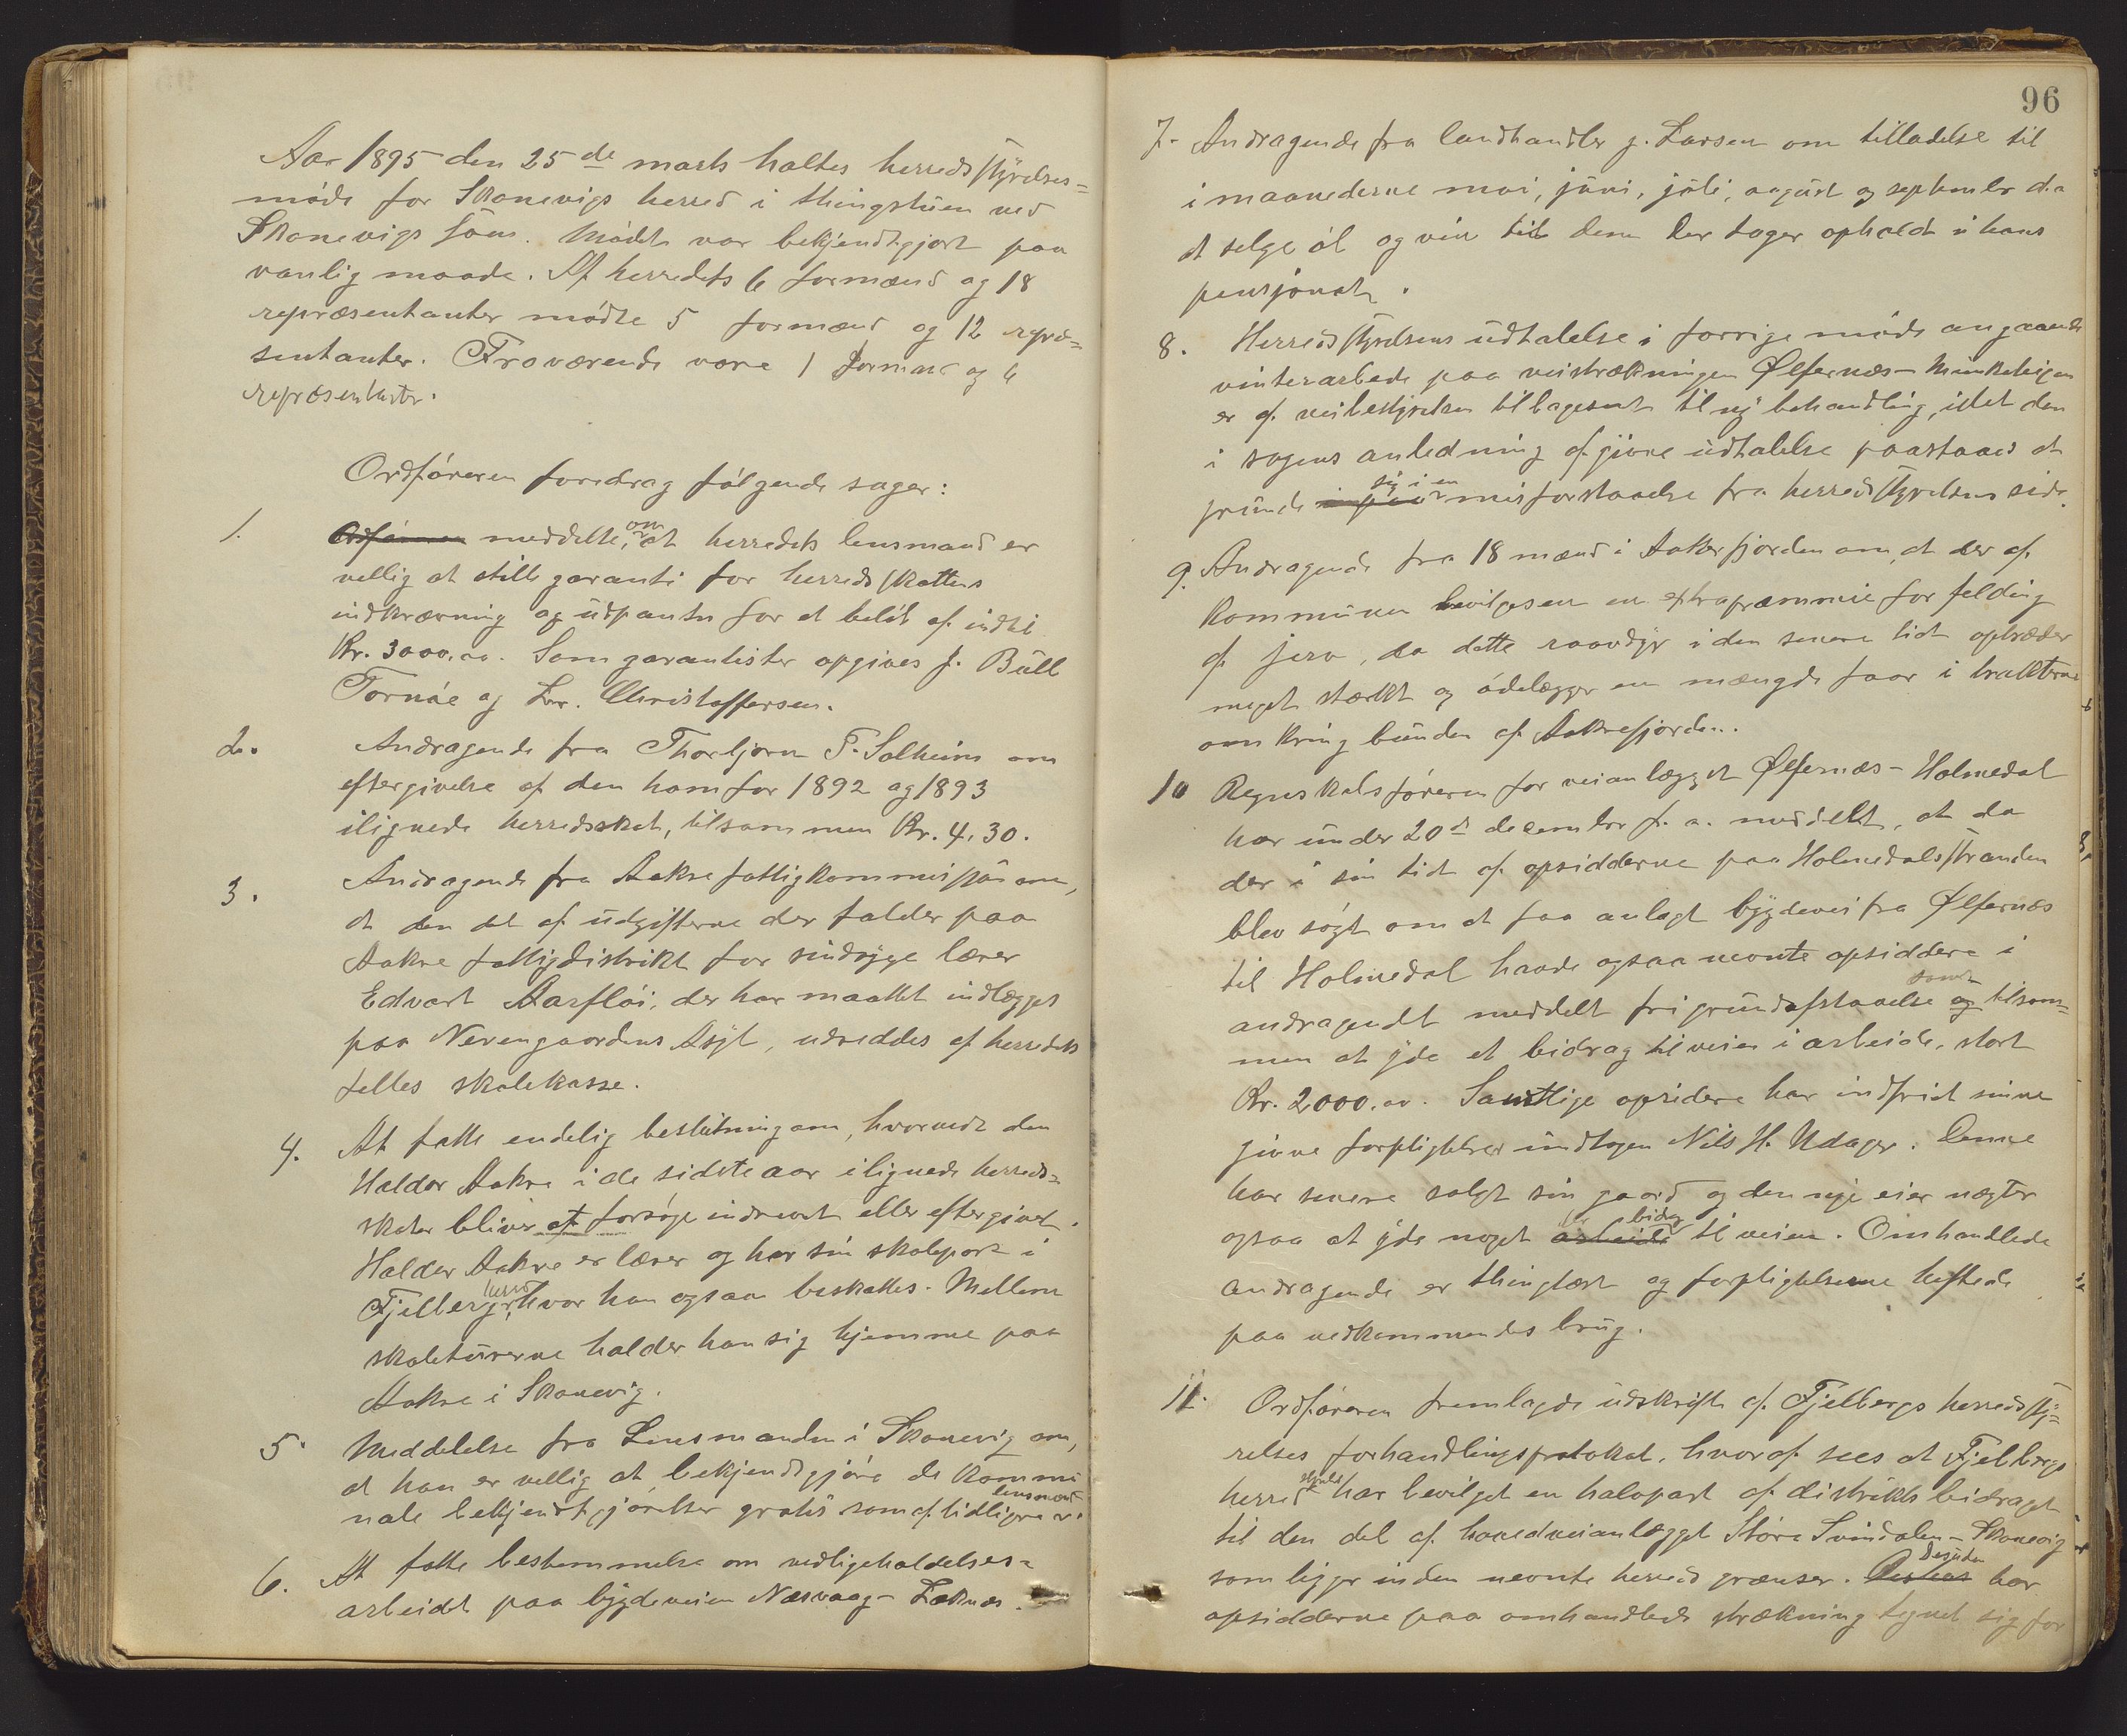 Aar 1895 den 25de marts holtes herredsstyrelses=
møde for Skonevigs herred i thingstuen ved
Skonevigs søen. Mødet var bekjendtgjort paa
vanlig maade. Af herredets 6 formænd og 18
repræsentanter mødte 5 formænd og 12 repræ=
sentanter. Fraværende vare 1 formand og 6
repræsentanter.
Ordføreren foredrag følgende sager:
1. Ordføreren meddelte, om at herredets lensmand er
vellig at stille garanti for herredsskattens
indkrævning og udpantn for et beløb af indtil
Kr. 3000.00. Som garantister opgives J. Bull
Tornøe og Lar. Christoffersen.
2. Andragende fra Thorbjørn T. Solheim om
eftergivelse af den ham for 1892 og 1893
ilignede herredsskat, tilsammen Kr. 4,30.
3. Andragende fra Aakre fattigkommission om,
at den del af udgifterne der falder paa
Aakre fattigdistrikt for sindsyge lærer
Edvart Aarsfløi, der har maattet indlægges
paa Nevengaardens Asyl, udreddes af herredets
felles skolekasse.
4. At fatte endelig beslutning om, hvorvidt den
Haldor Aakre i de sidste aar ilignede herreds=
skatter bliver at forsøge inddrevet eller eftergivet.
Haldor Aakre er lærer og har sin skolepost i
Fjelberg herred, hvor han ogsaa beskattes. Mellem
skoleturerne holder han sig hjemme paa
Aakre i Skonevig.
5. Meddelelse fra Lensmanden i Skonevig om,
at han er vellig at bekjendtgjøre de kommu
nale bekjendtgjørelser gratis som af tidligere lensmænd
6. At fatte bestemmelse om vedligeholdelses=
arbeidet paa bygdeveien Næsvaag - Læknes.
96
7. Andragende fra landhandler J. Larsen om tilladelse til
i maanederne mai, juni, juli, august og september d.a
at selge øl og vin til dem der tager ophold i hans
pensjonat.
8. Herredsstyrelsens udtalelse i forrige møde angaaende
vinterarbede paa veistrækningen Ølfernæs - Munkeleigen
er af veibestyrelsen tilbagesent til ny behandling, idet den
i sagens anledning afgivne udtalelse paastaaes at
grunde sig i en misforstaaelse fra herredsstyrelsens side.
9. Andragende fra 18 mænd i Aakrefjorden om, at der af
kommunen bevilges en extrapræmmie for felding
af jerv, da dette roovdyr i den senere tid optræder
meget stærkt og ødelægger en mængde faar i trakterne
omkring bunden af Aakrefjorden.
10 Regnskabsføreren for veianlægget Ølfernæs - Holmedal
har under 20de december f. a. meddelt, at da
der i sin tid af opsidderne paa Holmedalsstranden
blev søgt om at faa anlagt bygdevei fra Ølfernæs
til Holmedal havde ogsaa nevnte opsiddere i
andragendet meddelt fri grundafstaaelse samt og tilsam=
men at yde et bidrag til veien i arbeide, stort
Kr. 2000.00. Samtlige opsidere har indfriet sinne
givne forpligtelser undtagen Nils H. Udager. Denne
har senere solgt sin gaard og den nye eier nægter
ogsaa at yde noget arbeide bidrag til veien. Omhandlede
andragende er thinglæst og forpligtelserne heftede
paa vedkommendes brug.
11. Ordføreren fremlagde udskrift af Fjelbergs herredssty=
relses forhandlingsprotokol, hvoraf sees at Fjelbergs
herredsstyrelse har bevilget en halvpart af distrikts bidraget
til den del af hovedveianlægget Store Svindalen - Skonevig
som ligger inden nevnte herreds grænser. Desuden har
opsidderne paa omhandlede strækning tegnet sig for